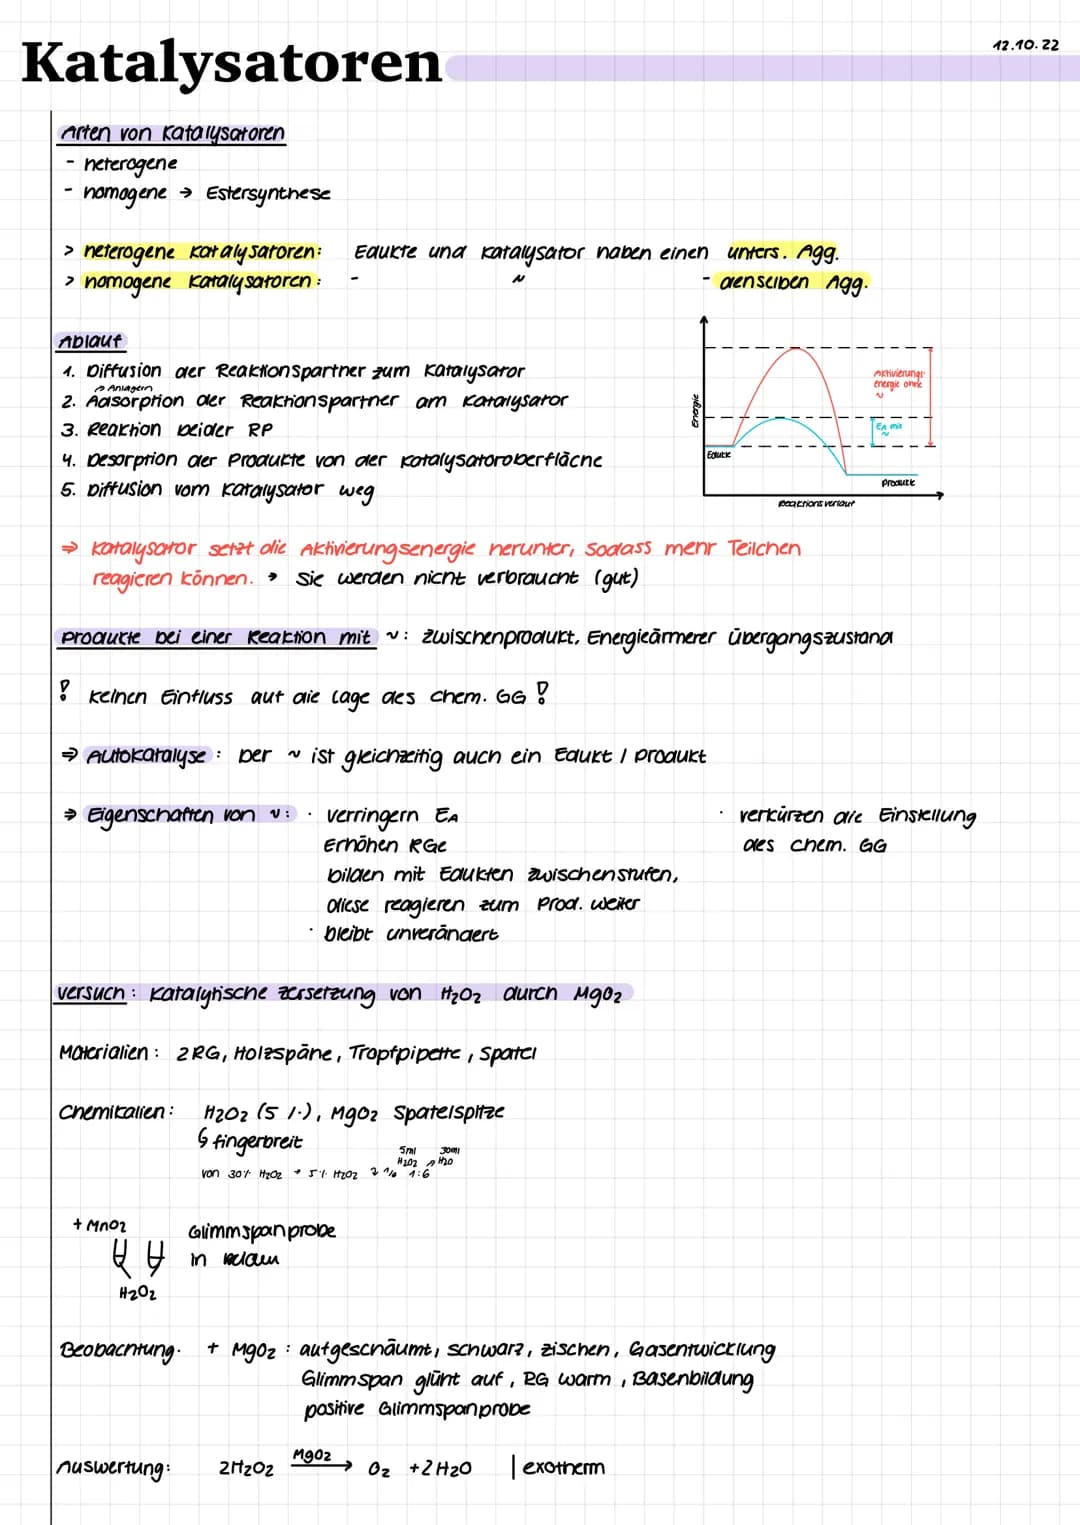 Katalysatoren
12.10.22
Arten von Katalysatoren
- heterogene
- homogene → Estersynthese
> heterogene Katalysatoren: Edukte und Katalysator haben einen unters. Agg.
> homogene Katalysatoren: - " - denselben Agg.
Ablauf
1. Diffusion der Reaktionspartner zum Katalysator
→ Anlagern
2. Adsorption der Reaktionspartner am Katalysator
3. Reaktion beider RP
4. Desorption der Produkte von der Katalysatoroberfläche
5. Diffusion vom Katalysator weg
Energie
Edukte
Aktivierungs
energie ohne
~
EA mit
~
Produkte
Reaktionsverlauf
⇒ Katalysator setzt die Aktivierungsenergie herunter, sodass mehr Teilchen
reagieren können. → Sie werden nicht verbraucht (gut)
Produkte bei einer Reaktion mit ~: Zwischenprodukt, Energieärmerer Übergangszustand
! Keinen Einfluss auf die Lage des chem. GG !
⇒ Autokatalyse: Der ~ ist gleichzeitig auch ein Edukt / Produkt
⇒ Eigenschaften von ~: · verringern EA
Erhöhen RGe
bilden mit Edukten Zwischenstufen,
diese reagieren zum Prod. weiter
· bleibt unverändert
· verkürzen die Einstellung
des chem. GG
Versuch: Katalytische Zersetzung von H2O2 durch MgO2
Materialien: 2 RG, Holzspäne, Tropfpipette, Spatel
Chemikalien: H2O2 (5 %), MgO2 Spatelspitze
↳ fingerbreit
5ml 30ml
H2O2 → H2O
von 30% H2O2 → 5% H2O2 1:6
+ MnO2
H2O2
Glimmspanprobe
in
Beobachtung: + MgO2 : aufgeschäumt, schwarz, zischen, Gasentwicklung
Glimmspan glüht auf, RG warm, Basenbildung
positive Glimmspanprobe
Auswertung: 2H2O2 MgO2 → O2 + 2H2O | exotherm